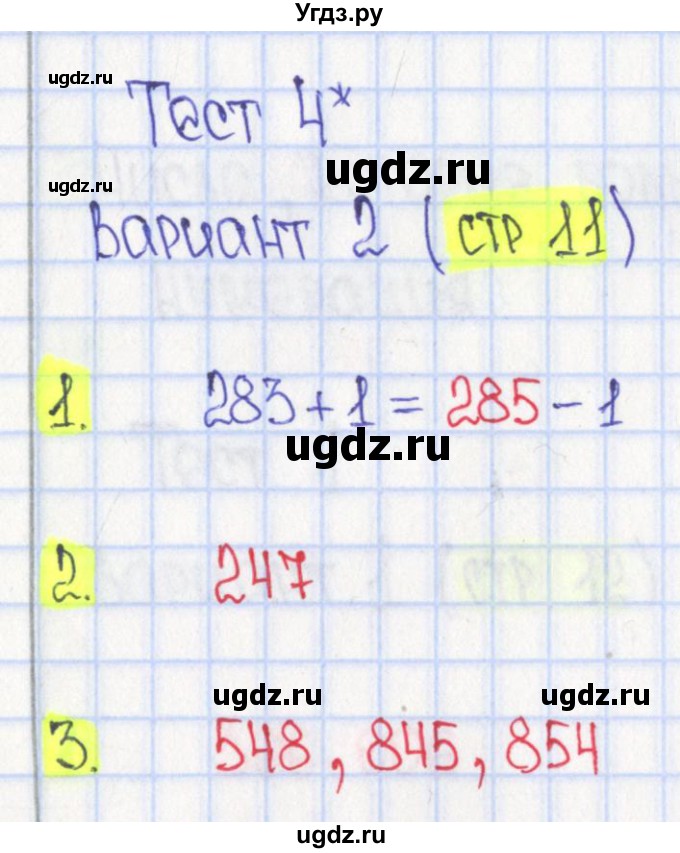 Угдз.ру
ugdz.ru
Тест 4*
ugdz.ru
ugdz.ru
Вариант 2 (стр 11)
1. 283 + 1 = 285 - 1
ugdz.ru
2. 247
ugdz.ru ugdz.ru
3. 548, 845, 854
ugdz.ru